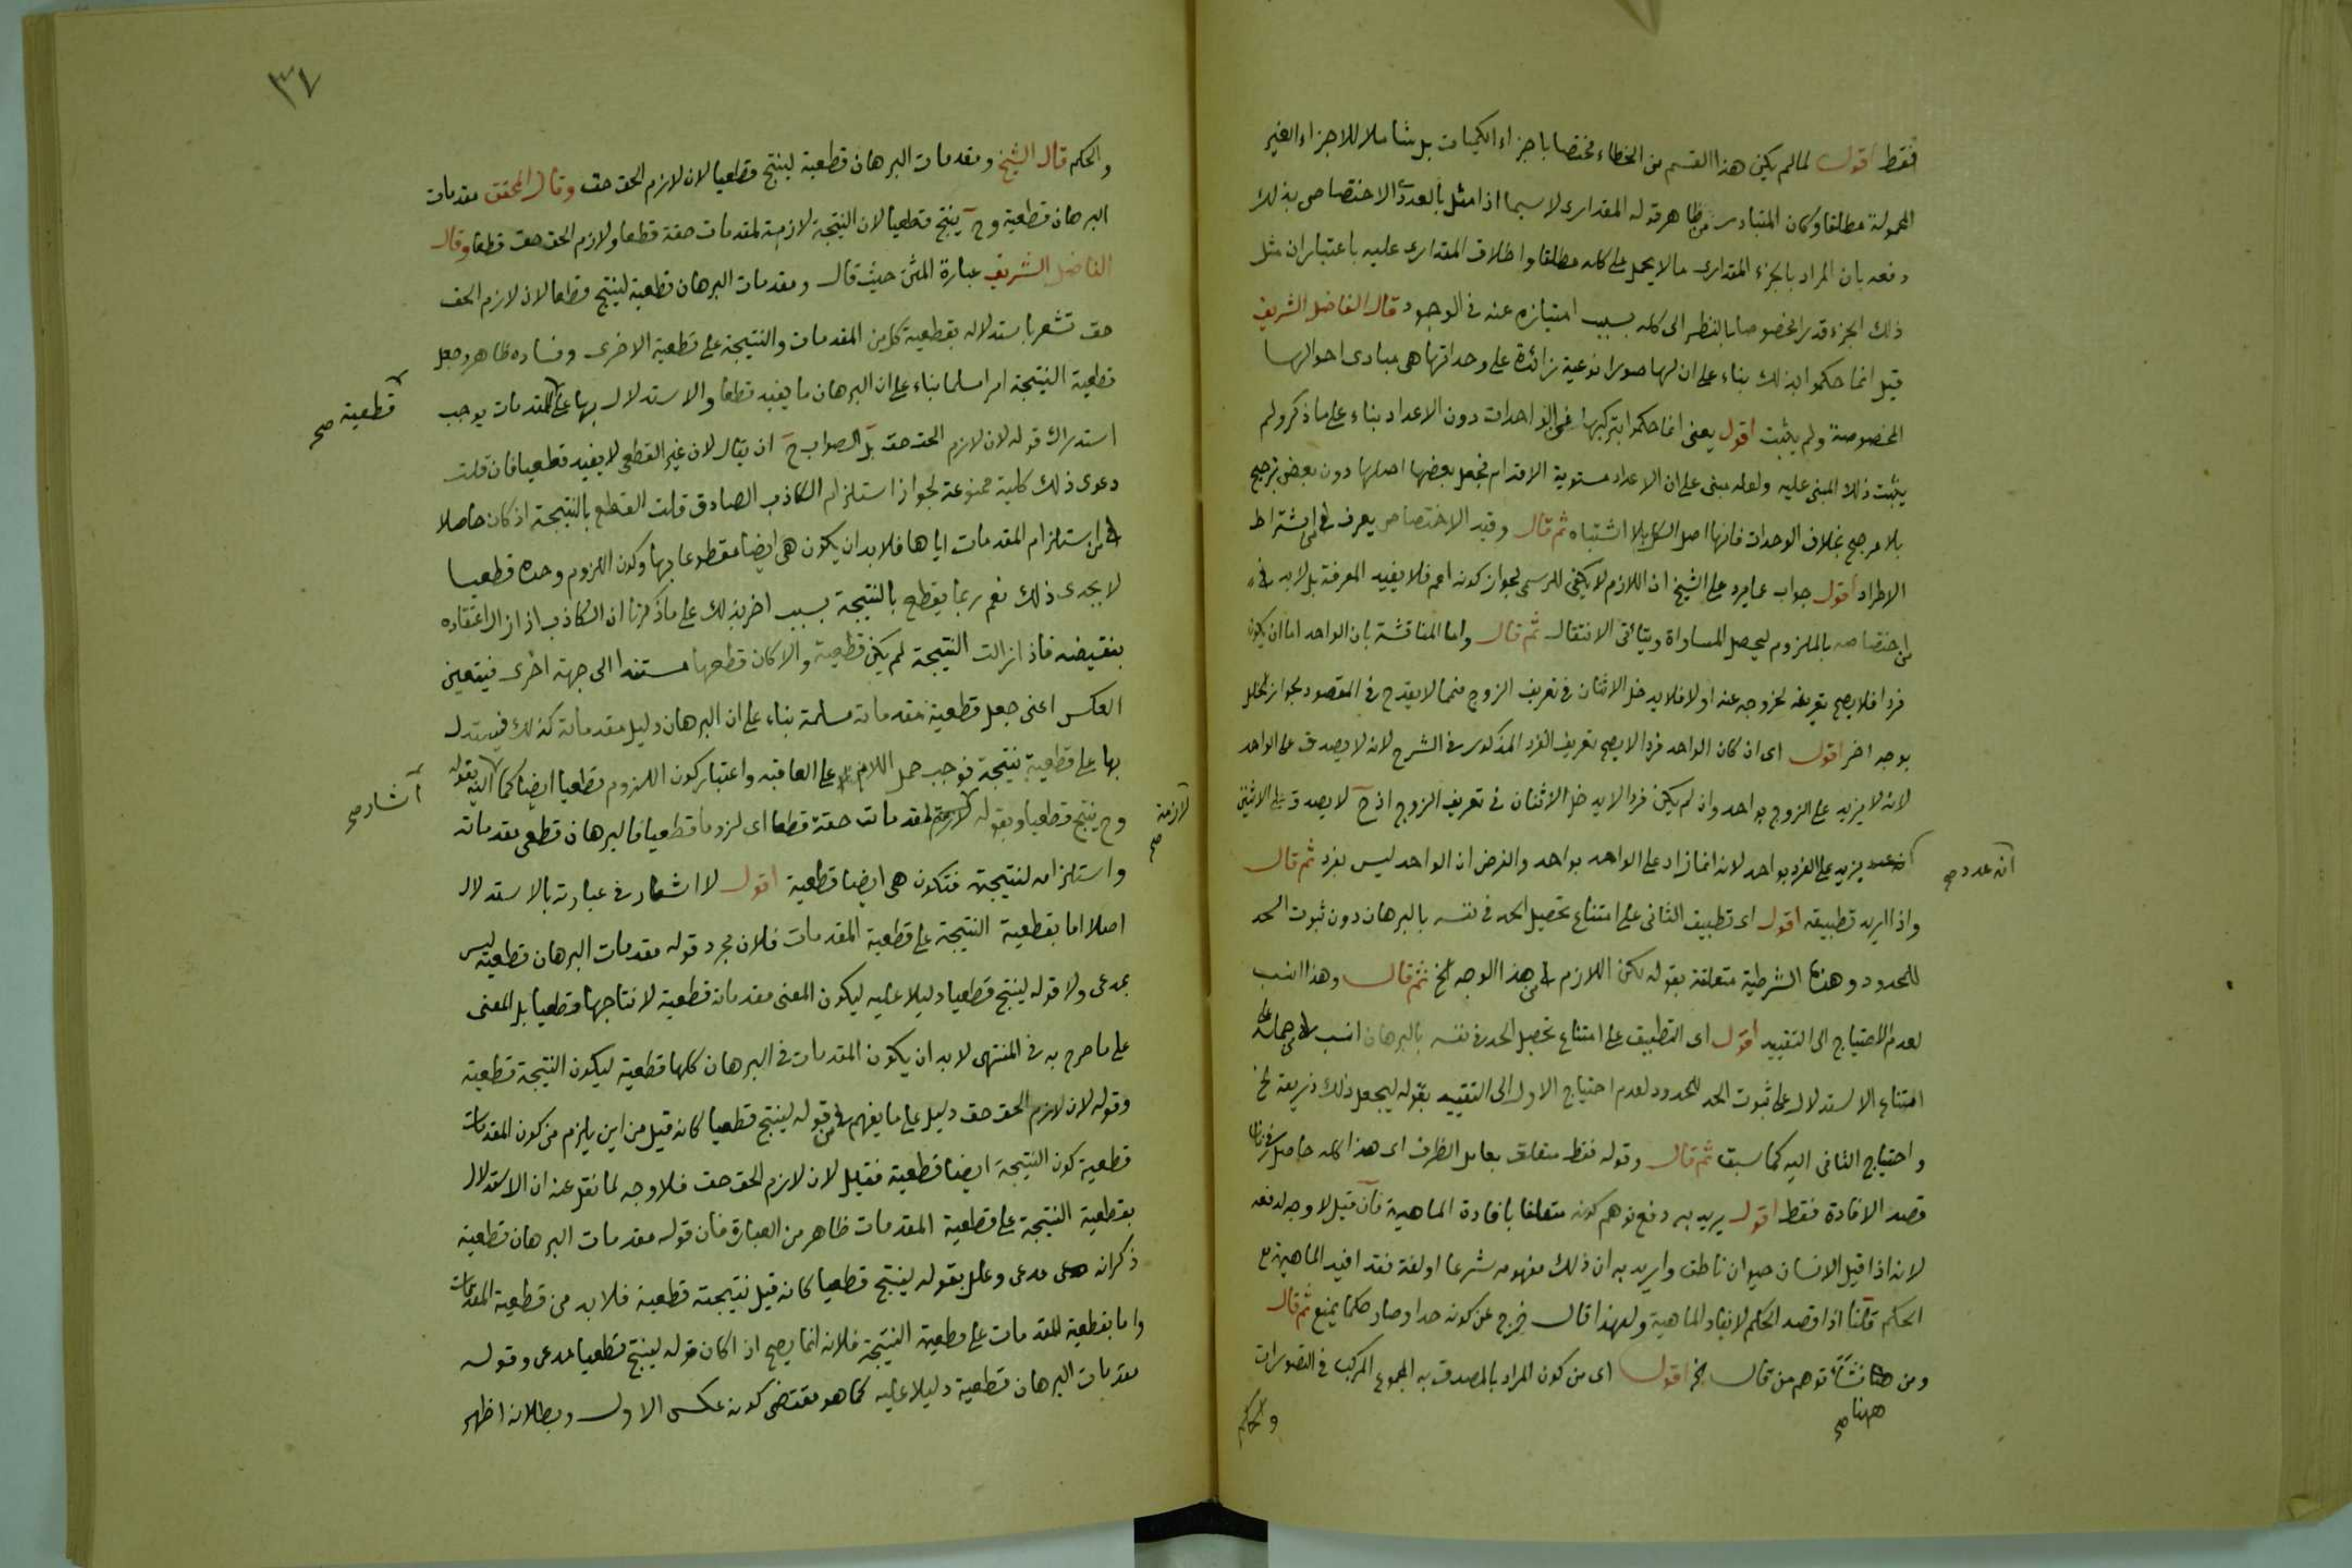 فقط اقول لما لم يكن هذا القسم من الخطاء مختصا باجزاء الكميات بل شاملا للاجزاء الغير
المحمولة مطلقا وكان المتبادر من ظاهر قوله المقدارى لا سيما اذا مثل بالعدد الاختصاص بذلك
دفعه بان المراد بالجزء المقدارى ما لا يحمل على كله مطلقا واطلاق المقدارى عليه باعتبار ان مثل
ذلك الجزء قدر مخصوصا بالنظر الى كله بسبب امتيازه عنه فى الوجود قال الفاضل الشريف
قيل انما حكموا بذلك بناء على ان لها صورا نوعية زائدة على وحداتها هى مبادى احوالها
المخصوصة ولم يثبت اقول يعنى انما حكموا بتركبها من الواحدات دون الاعداد بناء على ما ذكر ولم
يثبت ذلك المبنى عليه ولعله مبنى على ان الاعداد مستوية الاقدام فجعل بعضها اصلها دون بعض ترجيح
بلا مرجح بخلاف الوحدات فانها اصل الكل بلا اشتباه ثم قال وقيد الاختصاص يعرف من اشتراط
الاطراد اقول جواب عما يرد على الشيخ ان اللازم لا يكفى للرسم لجواز كونه اعم فلا يفيد المعرفة بل لا بد فيه
من اختصاصه بالملزوم ليحصل المساواة ويتأتى الانتقال ثم قال واما المناقشة بان الواحد اما ان يكون
فردا فلا يصح تعريفه لخروجه عنه او لا فلا يدخل الاثنان فى تعريف الزوج فمما لا يقدح فى المقصود لجواز الخلل
بوجه اخر اقول اى ان كان الواحد فردا لا يصح تعريف الفرد المذكور فى الشرح لانه لا يصدق على الواحد
لانه لا يزيد على الزوج بواحد وان لم يكن فردا لا يدخل الاثنان فى تعريف الزوج اذ ح لا يصدق على الاثنين
انه عدد يزيد على الفرد بواحد لانه انما زاد على الواحد بواحد والفرض ان الواحد ليس بفرد ثم قال
انه عدد صح
واذا اريد تطبيقه اقول اى تطبيق الثانى على امتناع تحصيل الحد فى نفسه بالبرهان دون ثبوت الحد
للمحدود وهذه الشرطية متعلقة بقوله لكن اللازم من هذا الوجه الخ ثم قال وهذا انسب
لعدم الاحتياج الى التقييد اقول اى التطبيق على امتناع تحصيل الحد فى نفسه بالبرهان انسب من حمله على
امتناع الاستدلال على ثبوت الحد للمحدود لعدم احتياج الاول الى التقييد بقوله ليجعل ذلك ذريعة الخ
واحتياج الثانى اليه كما سبق ثم قال وقوله فقط متعلق بعامل الظرف اى هذا كله حاصل
قصد الافادة فقط اقول يريد به دفع توهم كونه متعلقا بافادة الماهية فان قيل لا وجه لدفعه
لانه اذا قيل الانسان حيوان ناطق واريد به ان ذلك مفهومه شرعا او لغة فقد افيد الماهية مع
الحكم قلنا اذا قصد الحكم لا يفاد الماهية ولهذا قال خرج عن كونه حدا وصار حكما يمنع ثم قال
ومن نشأ توهم من قال الخ اقول اى من كون المراد بالمصدق به المجموع المركب فى التصورات
ههنا صح
والحكم
٣٧
والحكم قال الشيخ ومقدمات البرهان قطعية لينتج قطعيا لان لازم الحق حق وقال المحقق مقدمات
البرهان قطعية وح ينتج قطعيا لان النتيجة لازمة لمقدمات حقة قطعا ولازم الحق حق قطعا وقال
الفاضل الشريف عبارة المتن حيث قال ومقدمات البرهان قطعية لينتج قطعا لان لازم الحق
حق تشعر باستدلاله بقطعية كل من المقدمات والنتيجة على قطعية الاخرى وفساده ظاهر وجعل
قطعية النتيجة امرا مسلما بناء على ان البرهان ما يفيد قطعا والاستدلال بها على المقدمات يوجب
قطعية صح
استدراك قوله لان لازم الحق حق بل الصواب ح ان يقال لان غير القطعى لا يفيد قطعيا فان قلت
دعوى ذلك كلية ممنوعة لجواز استلزام الكاذب الصادق قلت القطع بالنتيجة اذ كان حاصلا
من استلزام المقدمات اياها فلا بد ان يكون هى ايضا مقطوعا بها وكون اللزوم وحده قطعيا
لا يجدى ذلك نعم ربما يقطع بالنتيجة بسبب اخر بذلك على ما ذكرنا ان الكاذب اذ ازال اعتقاده
بنقيضه فاذ ازالت النتيجة لم يكن قطعية والا كان قطعها مستندا الى جهة اخرى فيتعين
العكس اعنى جعل قطعية مقدماته مسلمة بناء على ان البرهان دليل مقدماته كذلك فيستدل
بها على قطعية نتيجة فوجب حمل اللام على العاقبة واعتبار كون اللزوم قطعيا ايضا كما اليه بقوله
اشار صح
وح ينتج قطعيا وبقوله لازمة لمقدمات حقة قطعا اى لزوما قطعيا فالبرهان قطعى مقدماته
لازمة صح
واستلزامه لنتيجته فتكون هى ايضا قطعية اقول لا اشعار فى عبارته بالاستدلال
اصلا اما بقطعية النتيجة على قطعية المقدمات فلان مجرد قوله مقدمات البرهان قطعية ليس
بمدعى ولا قوله لينتج قطعيا دليلا عليه ليكون المعنى مقدماته قطعية لانتاجها قطعيا بل المعنى
على ما صرح به فى المنتهى لا بد ان يكون المقدمات فى البرهان كلها قطعية ليكون النتيجة قطعية
وقوله لان لازم الحق حق دليل على ما يفهم من قوله لينتج قطعيا كانه قيل من اين يلزم من كون المقدمات
قطعية كون النتيجة ايضا قطعية فقيل لان لازم الحق حق فلا وجه لما نقل عنه ان الاستدلال
بقطعية النتيجة على قطعية المقدمات ظاهر من العبارة فان قوله مقدمات البرهان قطعية
ذكر انه مدعى وعلل بقوله لينتج قطعيا كانه قيل نتيجته قطعية فلا بد من قطعية المقدمات
واما بقطعية المقدمات على قطعية النتيجة فلانه انما يصح ان اكان قوله لينتج قطعيا مدعى وقوله
مقدمات البرهان قطعية دليلا عليه كما هو مقتضى كونه عكس الاول وبطلانه اظهر